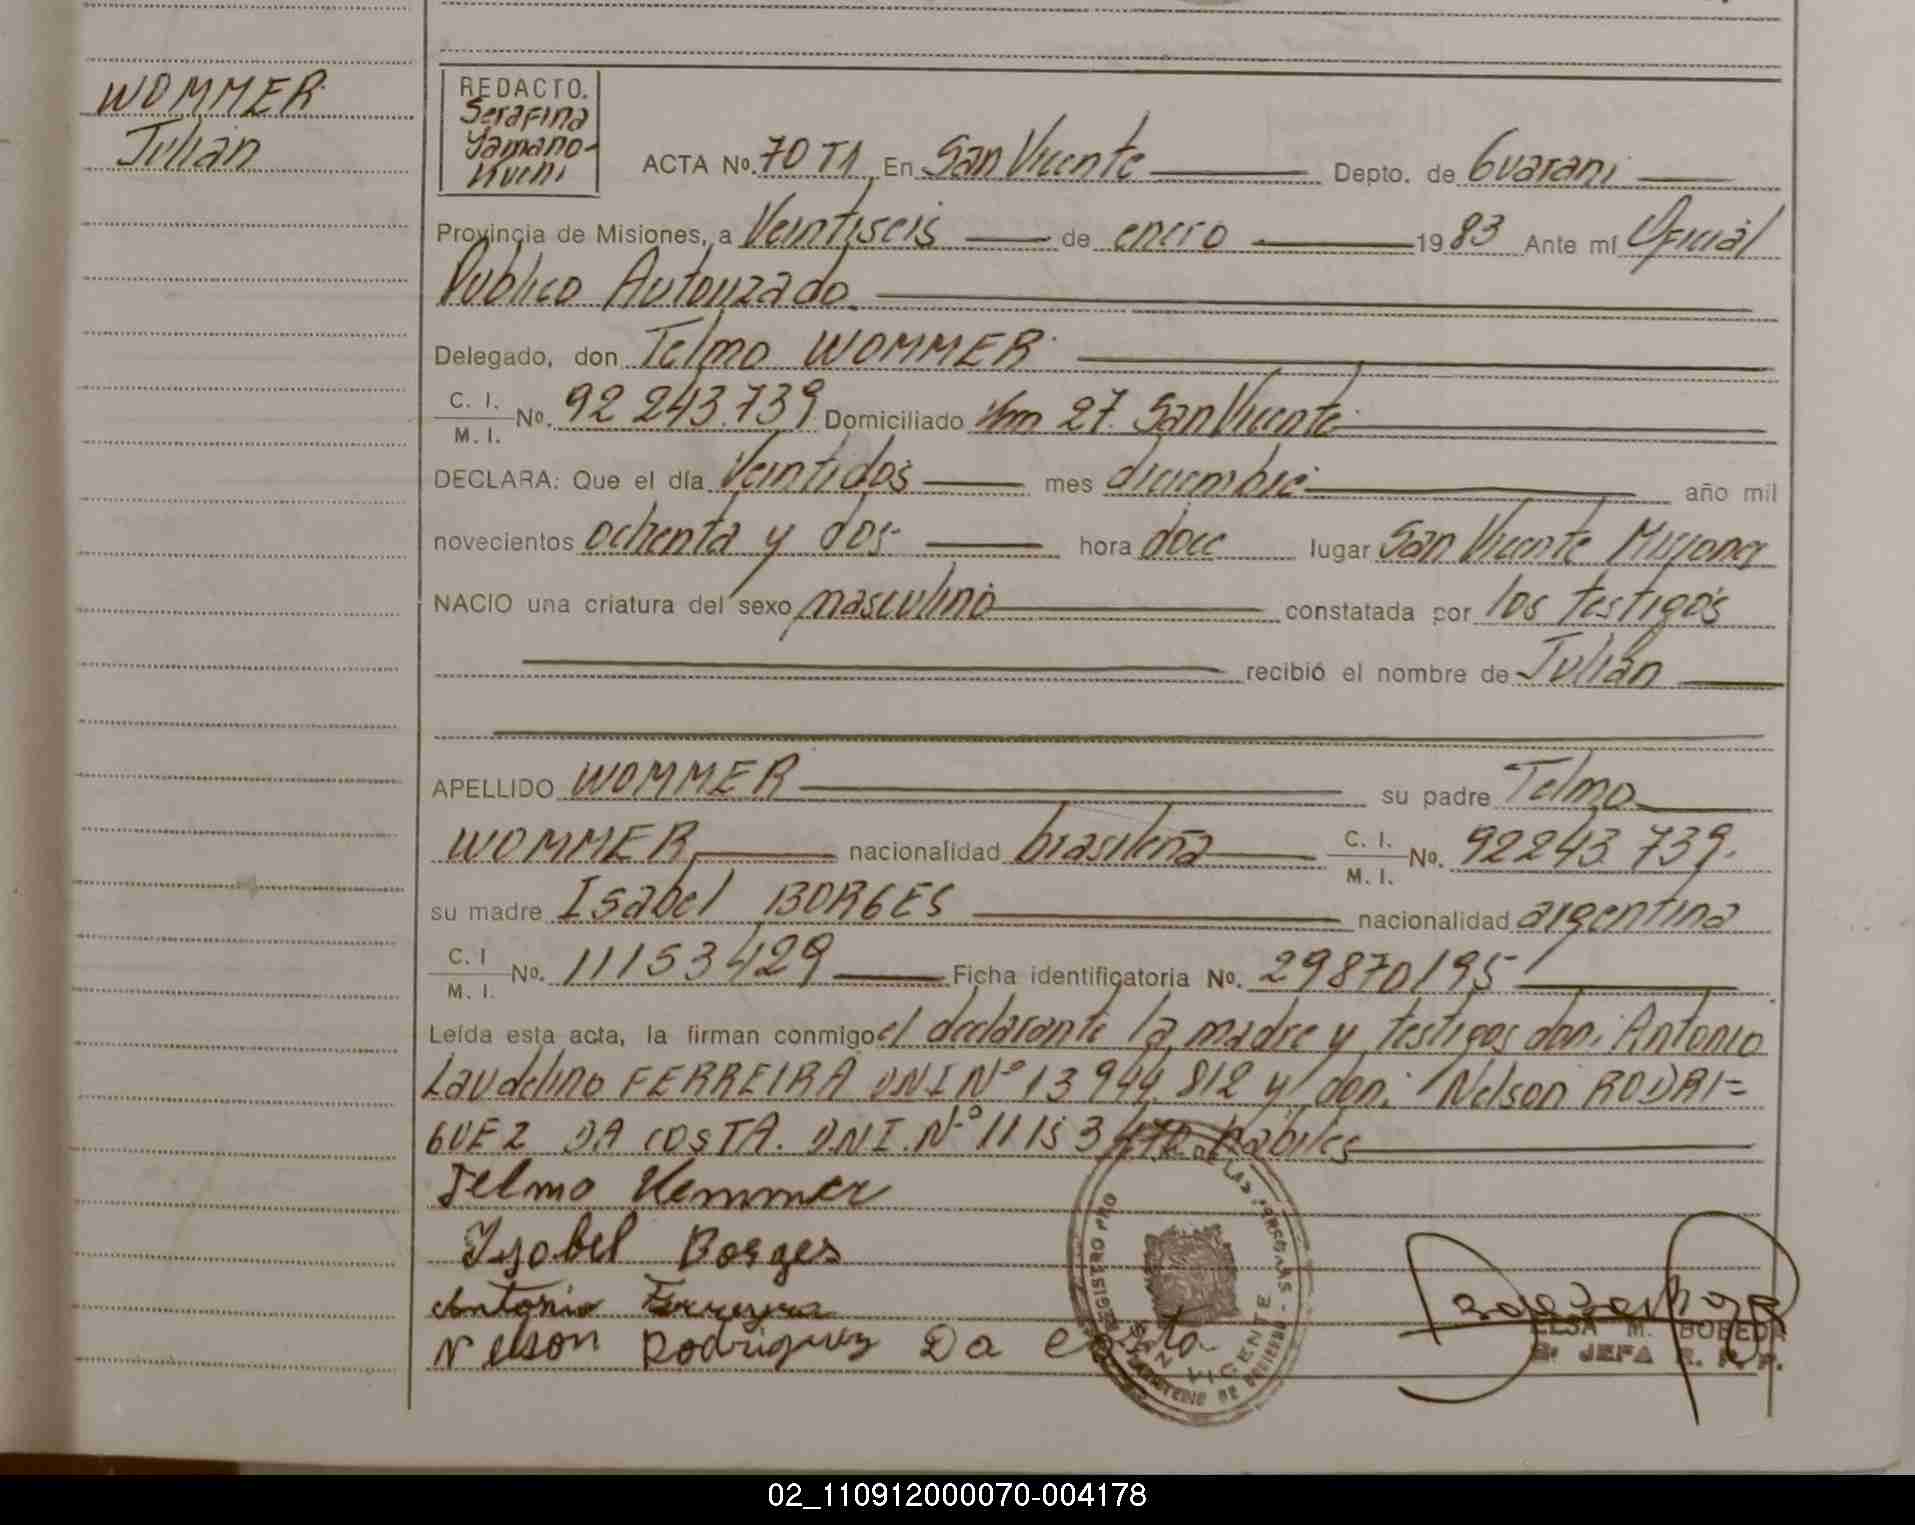 WOMMER
Julián
REDACTO.
Serafina
Yamano-
ACTA Nº. 70 T1 En San Vicente Depto. de Guaraní
Provincia de Misiones, a Veintiseis de enero 1983 Ante mí Oficial
Publico Autorizado
Delegado, don Telmo WOMMER
C. I.
M. I. Nº. 92 243.739 Domiciliado Km 27. San Vicente
DECLARA: Que el día Veintidos mes diciembre año mil
novecientos ochenta y dos hora doce lugar San Vicente Misiones
NACIO una criatura del sexo masculino constatada por los testigos
recibió el nombre de Julián
APELLIDO WOMMER su padre Telmo
WOMMER nacionalidad brasileña C. I.
M. I. Nº. 92243.739.
su madre Isabel BORGES nacionalidad argentina
C. I
M. I. Nº. 11153429 Ficha identificatoria Nº. 29870195
Leída esta acta, la firman conmigo el declarante la madre y testigos don: Antonio
Laudelino FERREIRA DNI Nº 13 944.812 y don: Nelson RODRI=
GUEZ DA COSTA. D.N.I. Nº 11153 habiles
Telmo Wemmer
Ysabel Borges
Antonio Ferreyra
Nelson Rodriguez Da Costa
SAN VICENTE
ELSA M. BOBEDA
JEFA R. P. P.
02_110912000070-004178